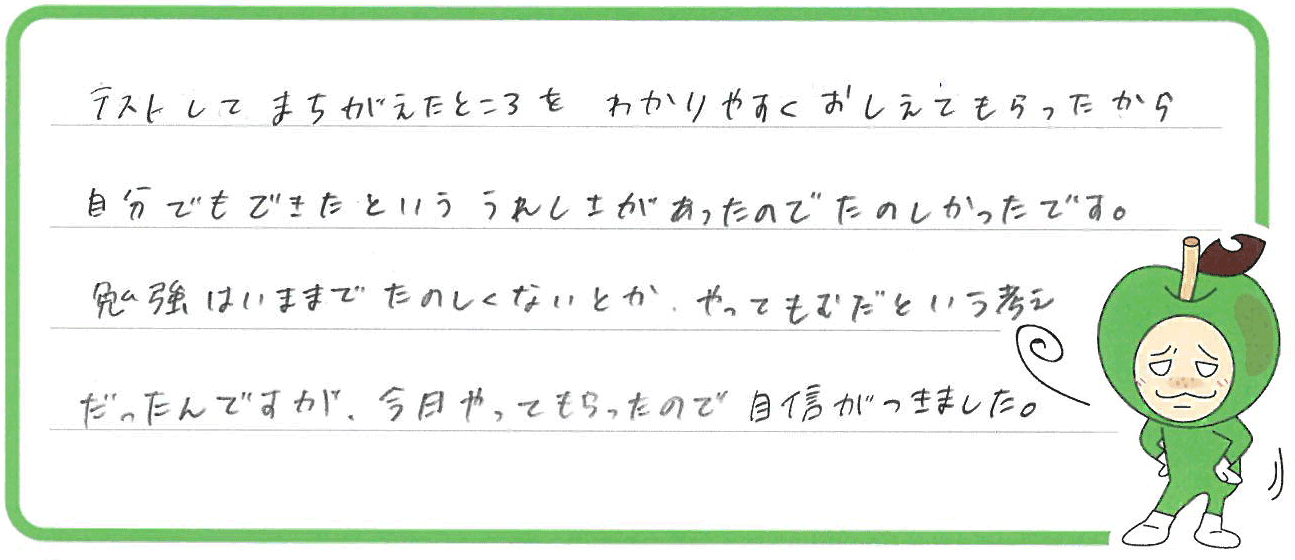 テストして まちがえたところを わかりやすく おしえてもらったから
自分でもできたという うれしさがあったのでたのしかったです。
勉強はいままで たのしくないとか、やってもむだという考え
だったんですが、今日やってもらったので 自信がつきました。